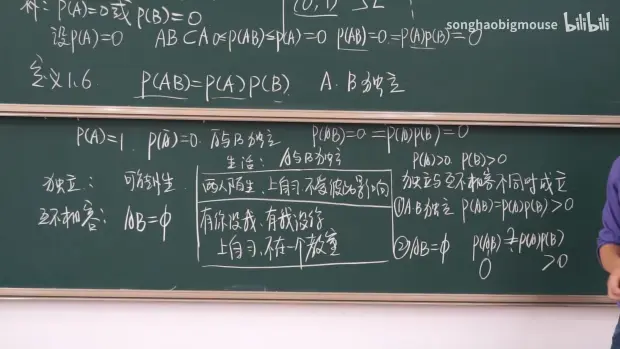 songhaobigmouse bilibili
P(A)=0或P(B)=0
设P(A)=0 AB⊂A 0≤P(AB)≤P(A)=0 P(AB)=0=P(A)P(B)=0
定义1.6 P(AB)=P(A)P(B) A.B独立
P(A)=1 P(Ā)=0 Ā与B独立 P(AB)=0=P(A)P(B)=0
生活: A与B独立 P(A)>0 P(B)>0
独立: 两人陌生,上自习不受彼此影响 独立与互不相容不同时成立
互不相容: AB=φ 有你没我,有我没你 ①A.B独立 P(AB)=P(A)P(B)>0
上自习,不在一个教室 ②AB=φ P(AB)≠P(A)P(B)
0 >0